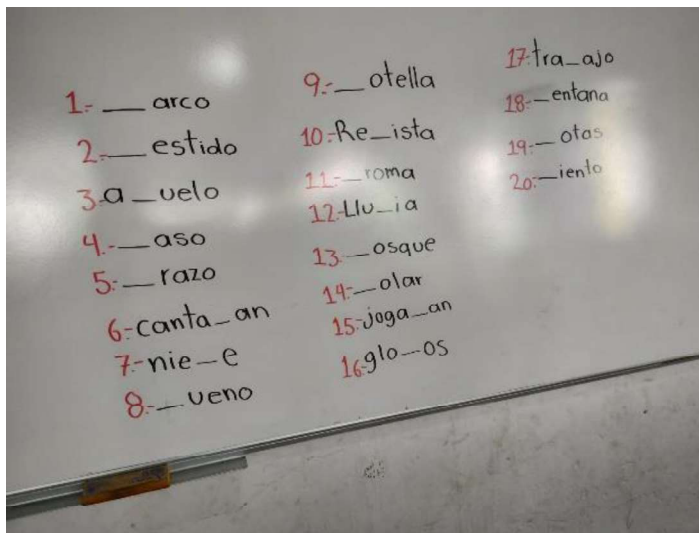 1.- __ arco
2.- __ estido
3.- a _ uelo
4.- __ aso
5.- __ razo
6.- canta _ an
7.- nie _ e
8.- __ ueno
9.- __ otella
10.- Re _ ista
11.- __ roma
12.- Llu _ ia
13. __ osque
14.- __ olar
15.- joga _ an
16.- glo _ os
17.- tra _ ajo
18.- _ entana
19.- _ otas
20.- _ iento